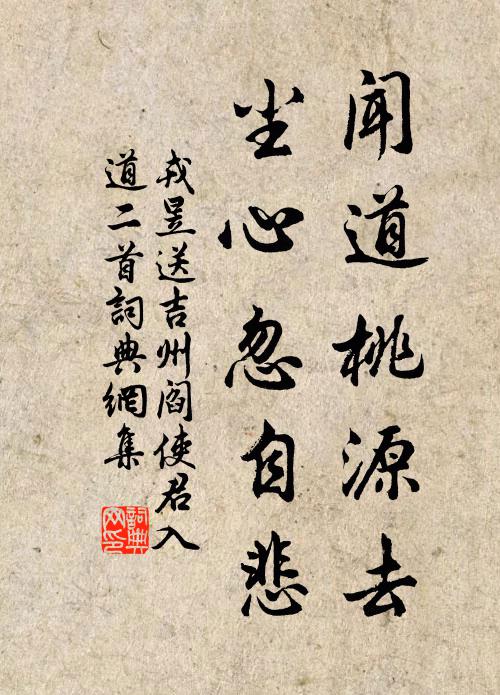 聞道桃源去
尘心忽自悲
戎昱送吉州阎使君入
道二首詞典網集
詞典
网印